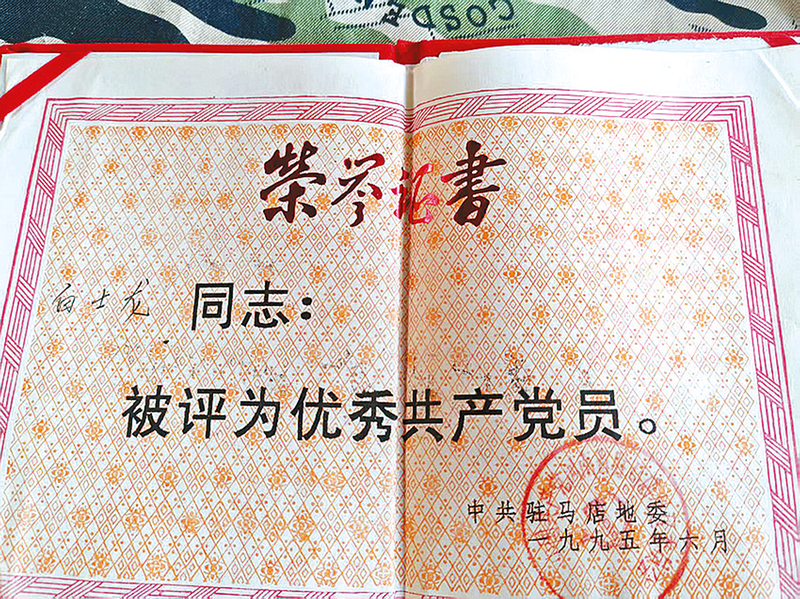 GOSD
荣誉证书
白士龙 同志：
被评为优秀共产党员。
中共驻马店地委
一九九五年六月